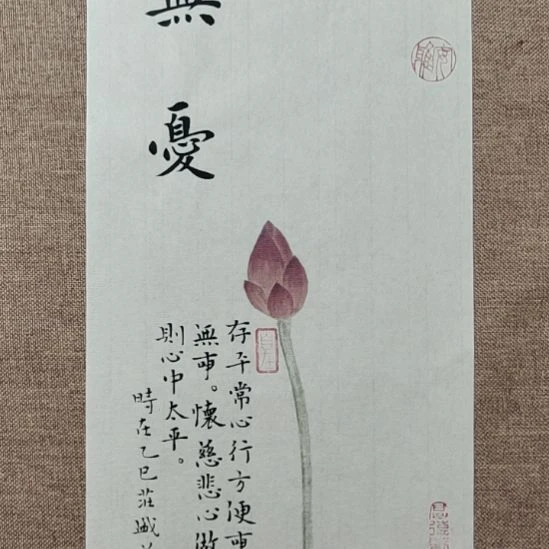 無
憂
存平常心行方便事
無事。懷慈悲心做
則心中太平。
時在乙巳莊